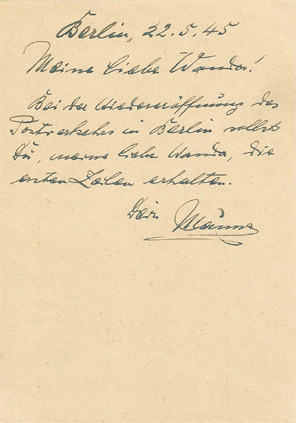 Berlin, 22.5.45
Meine liebe Wanda!
Bei der Wiedereröffnung des
Postverkehrs in Berlin sollst
Du, meine liebe Wanda, die
ersten Zeilen erhalten.
Dein